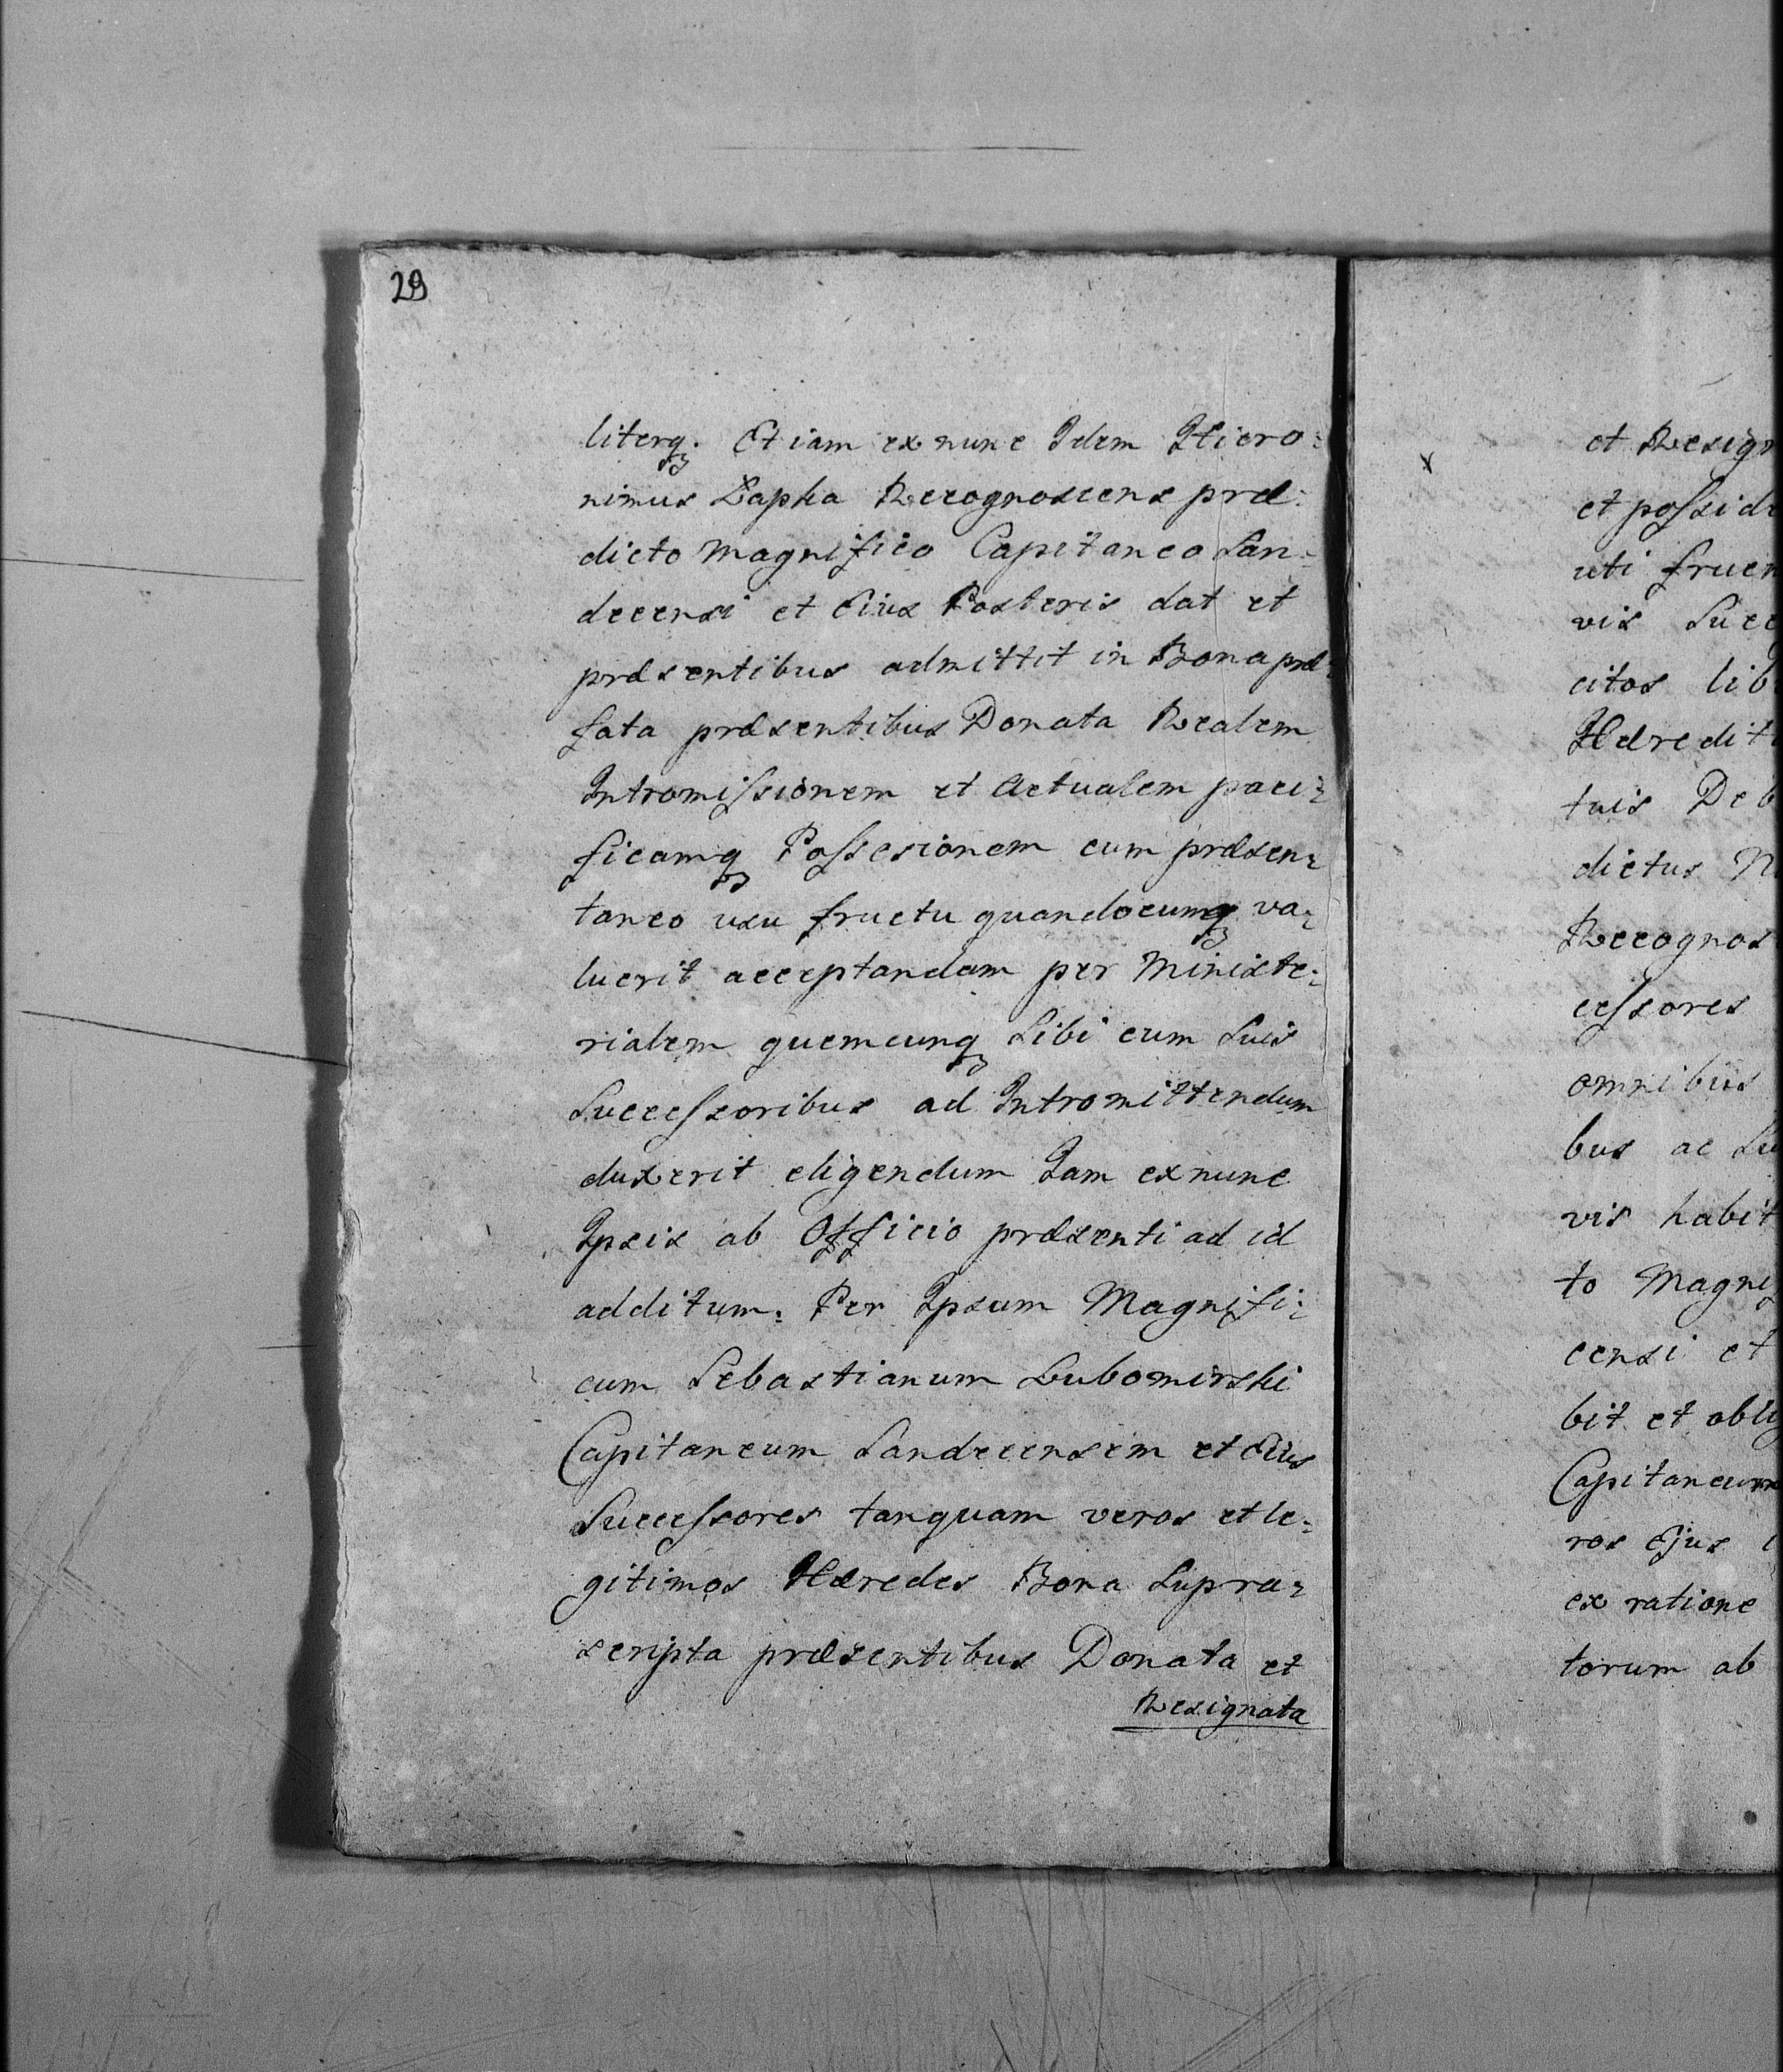 29
literq. Etiam ex nunc Idem Hiero:
nimus Łapka Recognoscens præ:
dicto Magnifico Capitaneo San:
decensi et Eius Posteris dat et
præsentibus admittit in Bona præ:
fata præsentibus Donata Realem
Intromissionem et Actualem paci:
ficamq Possesionem cum præsen:
taneo usu fructu quandocumq va:
luerit acceptandam per Ministe:
rialem quemcunq Sibi cum Suis
Successoribus ad Intromittendum
duxerit eligendum Jam ex nunc
Ipsis ab Officio præsenti ad id
additum: Per Ipsum Magnifi:
cum Sebastianum Lubomirski
Capitaneum Sandecensem et Eius
Successores tanquam veros et le:
gitimos Hæredes Bona Supra:
scripta præsentibus Donata et
Resignata
et Resign
et posside
uti fruen
vis Succ
citos lib
Hæredit
tuis Deb
dictus M
Recognos
cessores
omnibus
bus ac Su
vis habit
to Magnif
censi et
bit et oblig
Capitaneum
ros Ejus i
ex ratione
torum ab